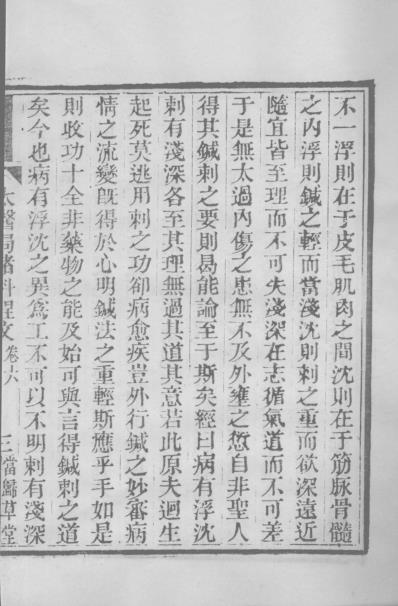 不一浮則在于皮毛肌肉之間沈則在于筋脉骨髓
之内浮則鍼之輕而當淺沈則刺之重而欲深遠近
隨宜皆至理而不可失淺深在志循氣道而不可差
于是無太過内傷之患無不及外壅之愆自非聖人
得其鍼刺之要則曷能論至于斯矣經曰病有浮沈
刺有淺深各至其理無過其道其意若此原夫迴生
起死莫逃用刺之功卻病愈疾豈外行鍼之妙審病
情之流變既得於心明鍼法之重輕斯應乎手如是
則收功十全非藥物之能及始可與言得鍼刺之道
矣今也病有浮沈之異爲工不可以不明刺有淺深
太醫局諸科程文 卷六 三 當歸草堂